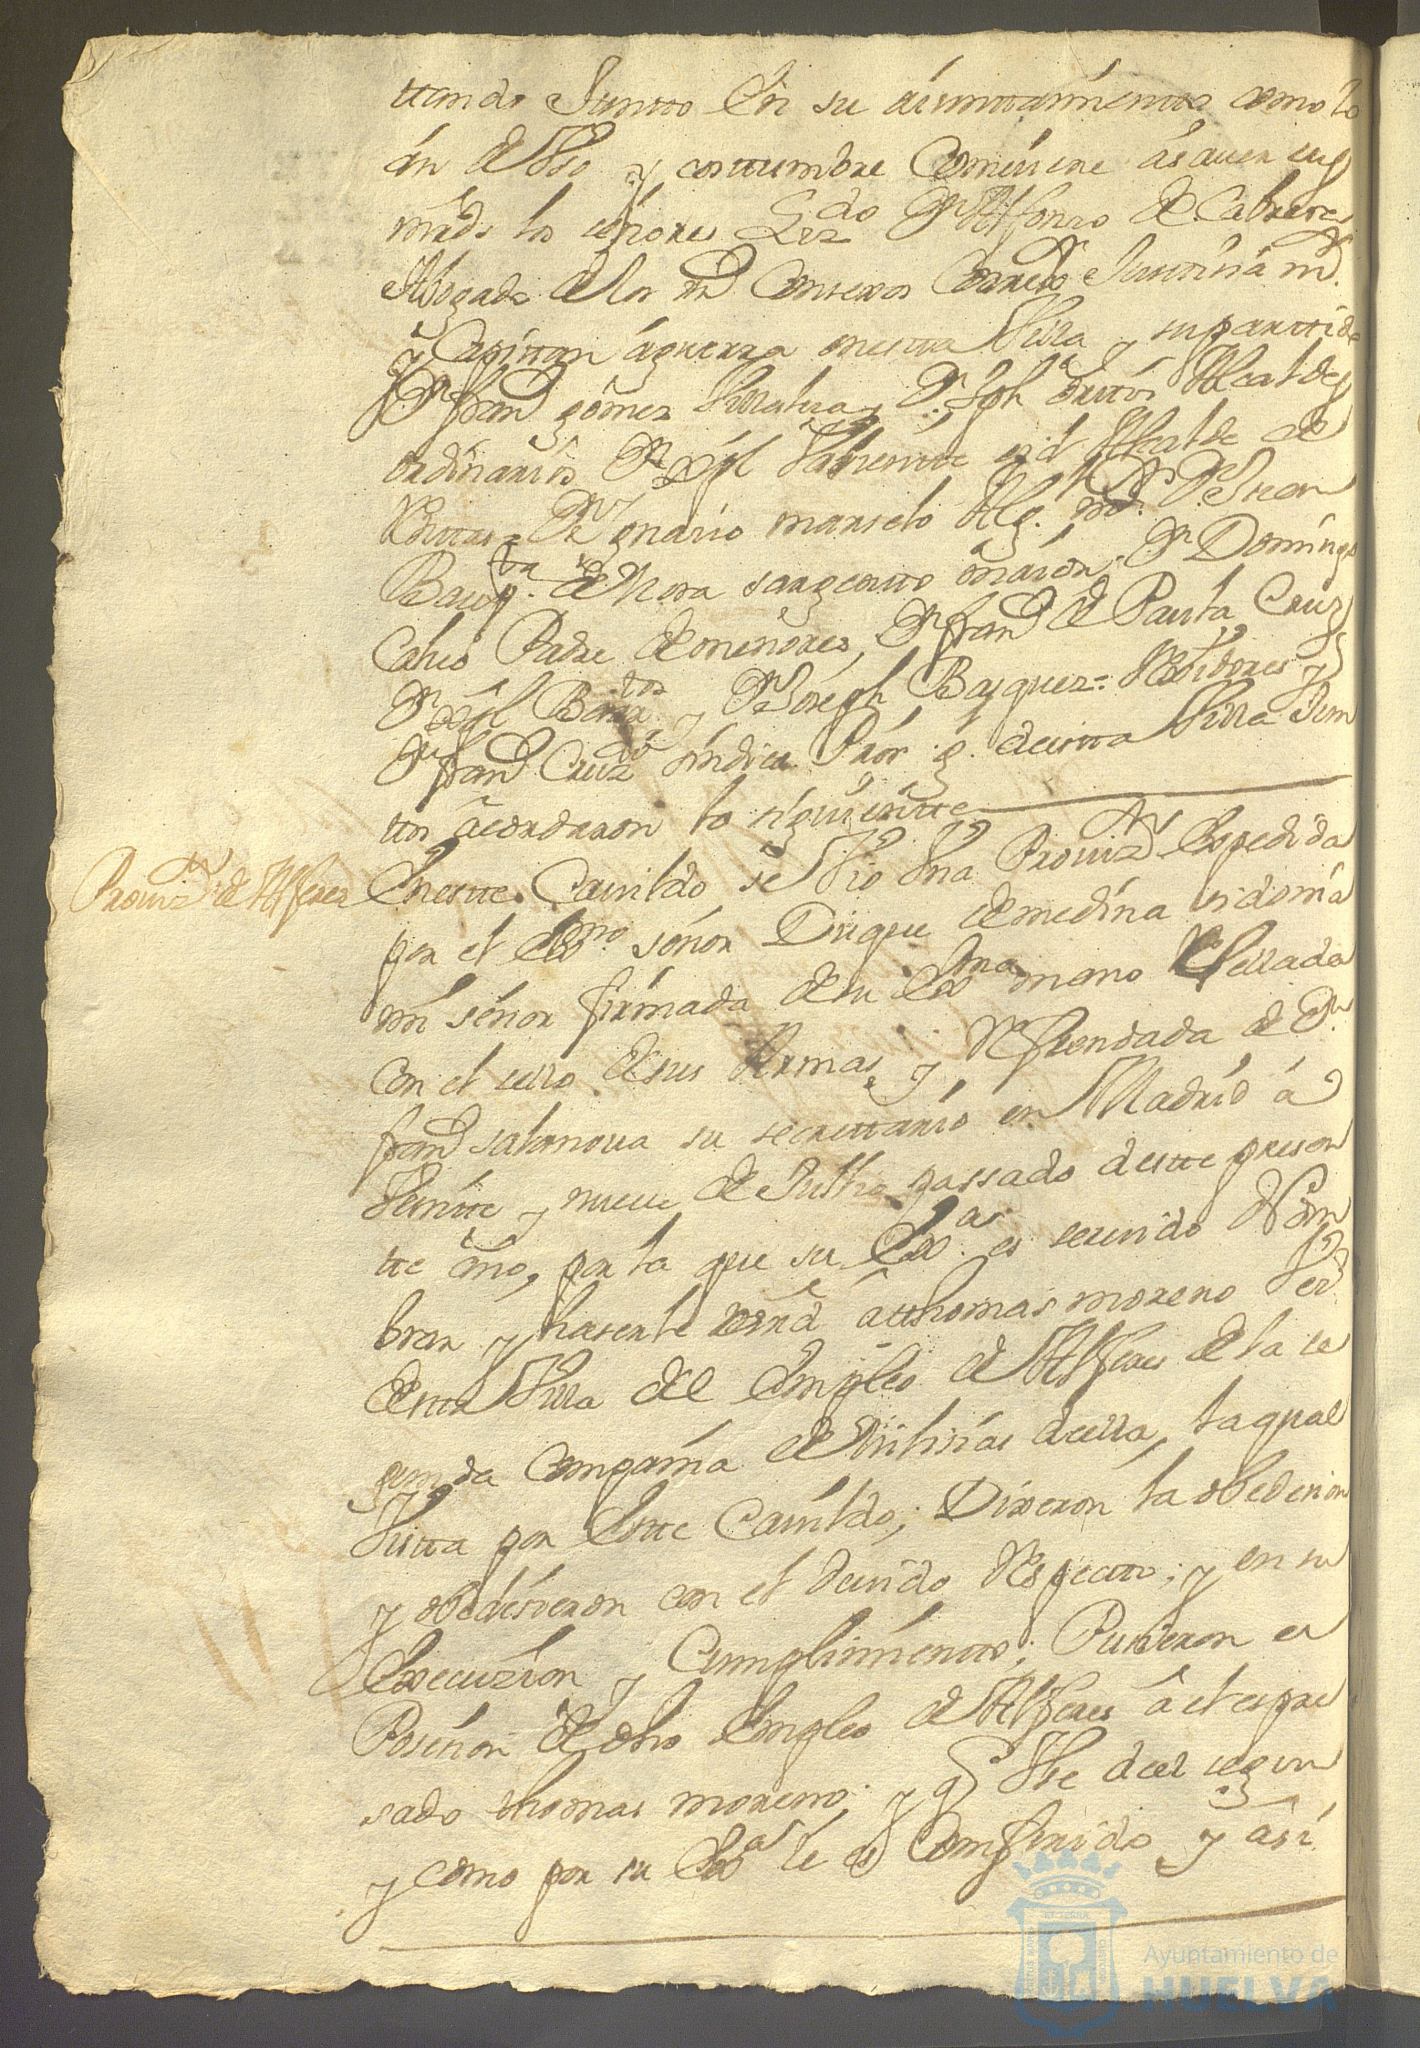 ttando Juntto En su aiunttamientto como lo
an de Vso y costtumbre Combiene a sauer sus
mrds los señores Lizdo Dn Alfonso de Cabrera
Abogado de los Rs Consexos Correxr Justtizia mr
y Capittan a guerra en estta Villa y su parttido
Dn franco gomez Dn Joph Alcaldes
ordinarios Dn Migl Alcalde de
Dn Ygnazio marselo Alg. mr Dn Juan
Bauptta de Mora sargentto maior Dn Domingo
Calvo Padre de menores, Dn franco de Paula Cruz
Dn Migl y Dn Joseph Bazquez = Rexidores y
Dn franco Cruzdo sindico Pror g. de estta Villa Jun
ttos acordaron lo siguientte
Provizn de Alferez
En estte Cauildo se Vio Vna Provizn Expedida
por el Exmo señor Duque de medina sidonia
mi señor firmada de su Exma mano Sellada
con el sello de sus Armas, y Refrendada de Dn
franco salanova su secrettario en Madrid a
Veintte y nueve de Jullio passado de estte presen
tte año, por la que su Exas es seruido Nom
brar y haserle mrd a thomas moreno Vezo
de stta Villa del Empleo de Alferes de la se
gunda Compañia de Milisias de ella, la qual
Vistta por Estte Cauildo; Dixeron la obedecian
y obedesieron con el deuido Respecto; y en su
Execuzion y Cumplimientto; Pusieron en
Posesion de dho Empleo de Alferes a el expre
sado thomas moreno; y qe Vse de el segun
y como por su Exas le es Conferido y asi
Ayuntamiento de
HUELVA